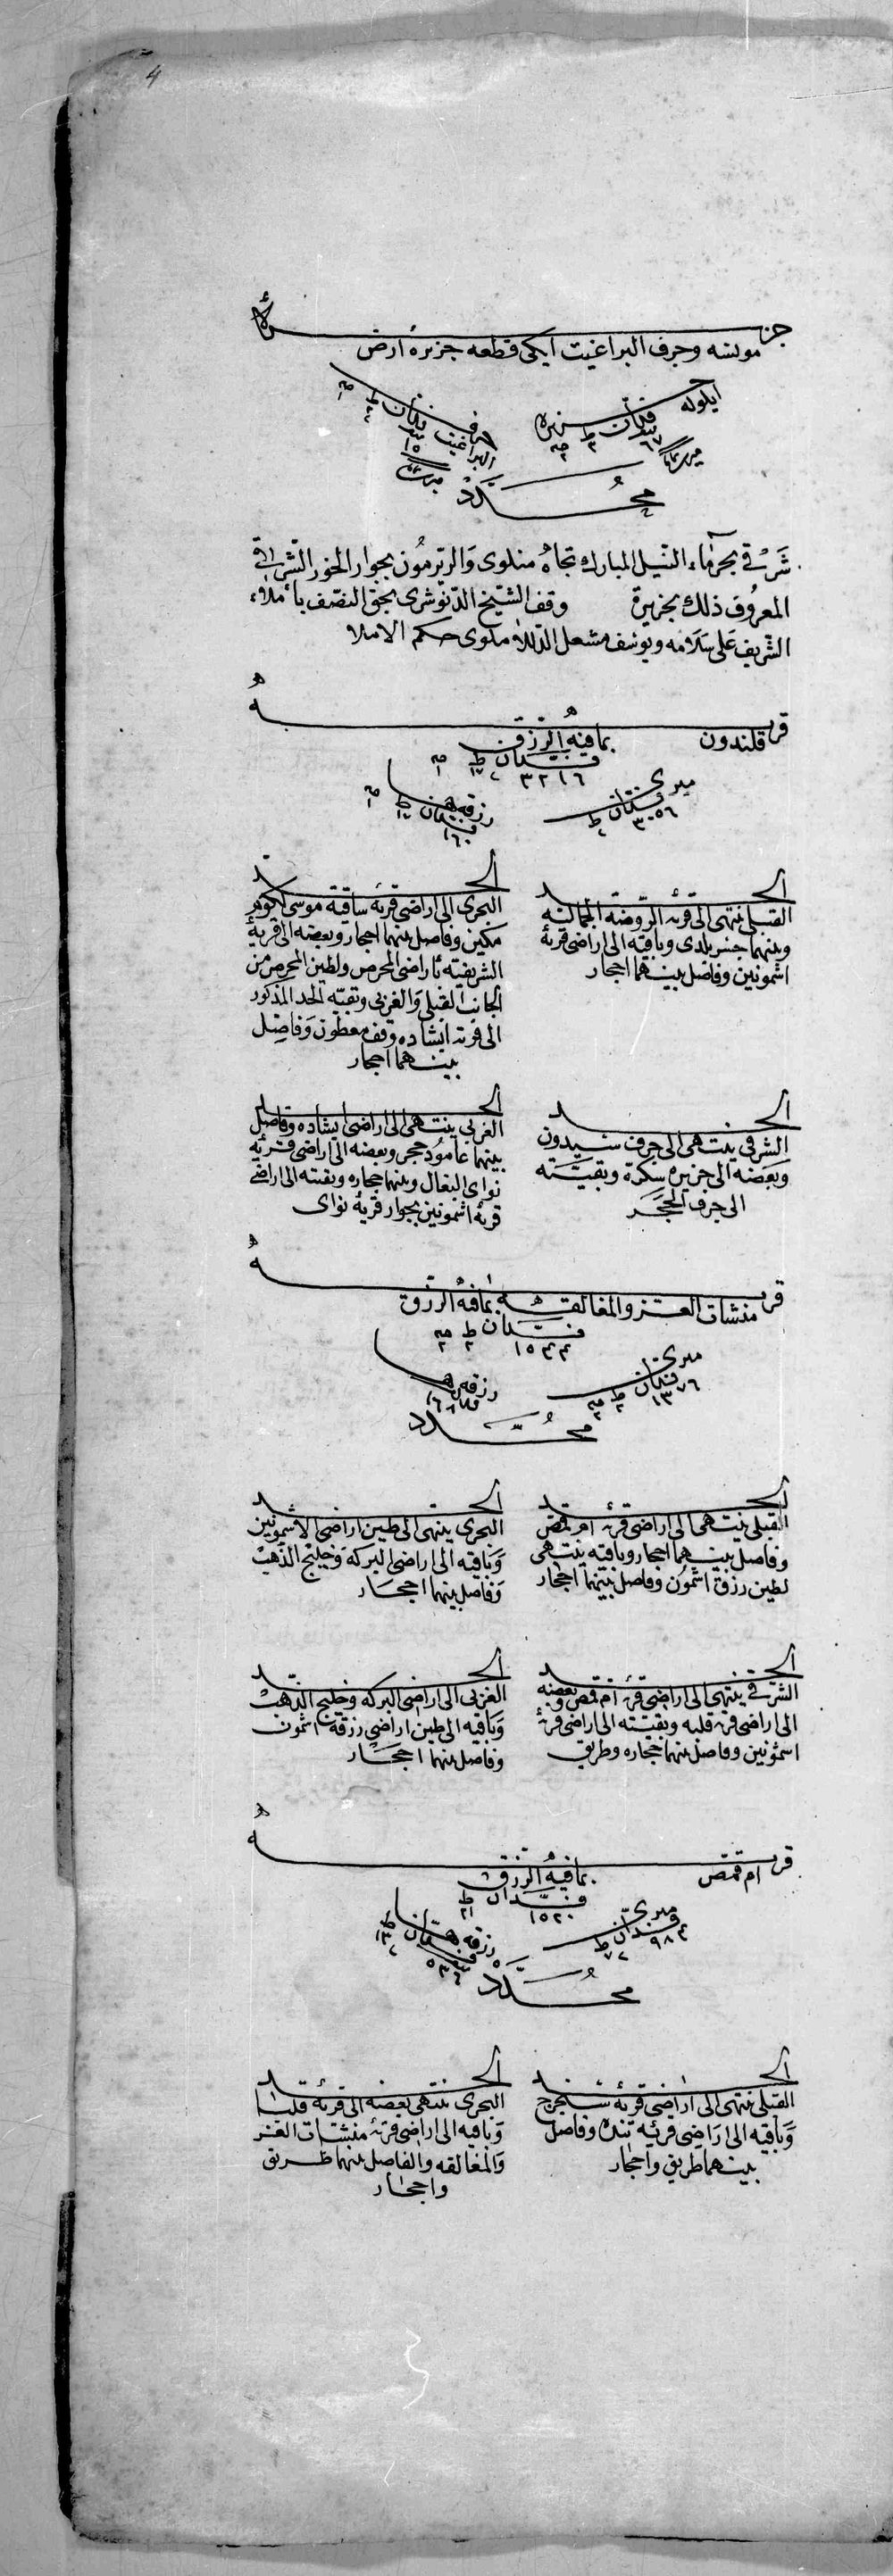 4
جزيرة
مونسه وجرف البراغيت ايكى قطعه جزيره ارض
ايلوله جزيره
فدان ط
٦٧ ٣
جرف البراغيت
فدان ط
١٥
محدد
شرقي بحر ماء النيل المبارك تجاه منلوى والريرمون بجوار الخور الشراقي
المعروف ذلك بجزيرة وقف الشيخ الدنوشرى بحق النصف باملاء
الشريف على سلامه ويوسف مشعل الدلال ملوى حكم الاملا
قريه
قلندون بما فيه الرزق
فدان ط
٣٢١٦
ميرى
فدان ط
٣٠٥٦
رزقه ها
فدان ط
١٦٠
الحد
القبلى ينتهى الى قريه الروضه الجماليه
وبينهما جسر بلدى وباقيه الى اراضى قرية
اشمونين وفاصل بينهما احجار
الحد
البحرى الى اراضى قريه ساقية موسى
مكين وفاصل بينهما احجار وبعضه الى قرية
الشريفيه باراضى المحرص ولطين المحرص من
الجانب القبلى والغربى وبقيه الحد المذكور
الى قريه ابشاده وقف معطون وفاصل
بينهما احجار
الحد
الشرقى ينتهى الى جرف شيدون
وبعضه الى جزيره سكرة وبقيته
الى جرف الحجر
الحد
الغربى ينتهى الى اراضى ابشاده وفاصل
بينهما عامود حجر وبعضه الى اراضى قريه
نواى البغال وبينهما حجاره وبقيته الى اراضى
قرية اشمونين بجوار قرية نواى
قريه
منشات العتر والمغالقه بما فيه الرزق
فدان ط
١٥٤٤ ٢
ميرى
فدان ط
١٣٧٦ ٢
رزقه ها
فدان
١٦٨
محدد
الحد
القبلى ينتهى الى اراضى قريه ام قمص
وفاصل بينهما احجار وباقيه ينتهى
لطين رزقة اشمون وفاصل بينهما احجار
الحد
البحرى ينتهى الى طين اراضى الاشمونين
وباقيه الى اراضى البركه وخليج الذهب
وفاصل بينهما احجار
الحد
الشرقى ينتهى الى اراضى قريه ام قمص وبعضه
الى اراضى قريه قلبه وبقيته الى اراضى قرية
اسمونين وفاصل بينهما حجاره وطريق
الحد
الغربى الى اراضى البركه وخليج الذهب
وباقيه الى طين اراضى رزقة اشمون
وفاصل بينهما احجار
قريه
ام قمص بما فيه الرزق
فدان ط
١٥٢٠ ٢١
ميرى
فدان ط
٩٨٤ ٧
رزقه ها
فدان ط
٥٣٦ ١٣
محدد
الحد
القبلى ينتهى الى اراضى قرية سنجرج
وباقيه الى اراضى قريه تنده وفاصل
بينهما طريق واحجار
الحد
البحرى ينتهى بعضه الى قرية قلبا
وباقيه الى اراضى قرية منشات العتر
والمغالقه والفاصل بينهما طريق
واحجار